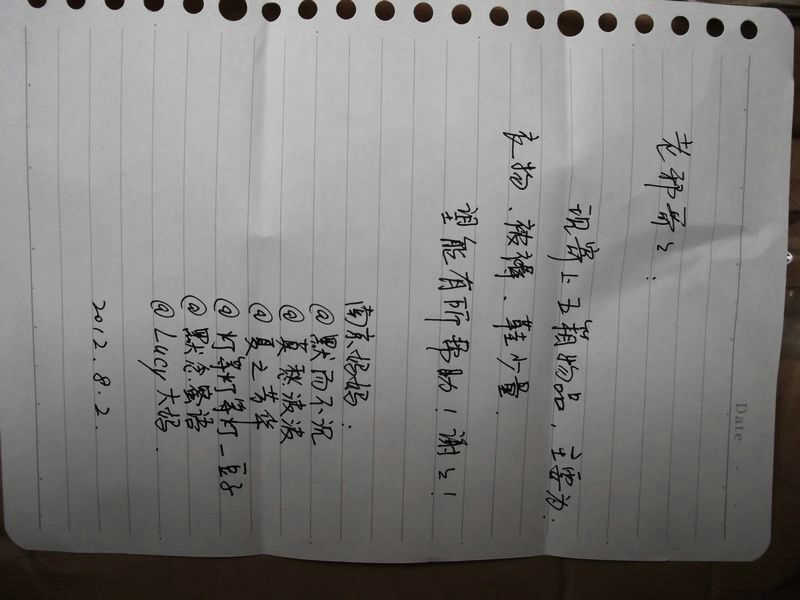 Date
老邪哥:
现寄上五箱物品,主要为:
衣物、被褥、鞋少量
望能有所帮助!谢谢!
南京妈妈:
@默而不沉
@莫愁波波
@夏之芳华
@灯等灯等灯一豆子
@默念蜜语
@Lucy大妈
2012.8.2.